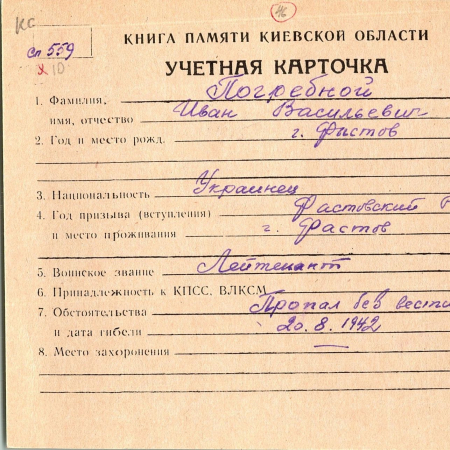 КС
сп 559
КНИГА ПАМЯТИ КИЕВСКОЙ ОБЛАСТИ
УЧЕТНАЯ КАРТОЧКА
1. Фамилия, Погребной
имя, отчество Иван Васильевич
2. Год и место рожд. г. Фастов
3. Национальность Украинец
4. Год призыва (вступления) Фастовский Р
и место проживания г. Фастов
5. Воинское звание Лейтенант
6. Принадлежность к КПСС, ВЛКСМ
7. Обстоятельства Пропал без вести
и дата гибели 20.8.1942
8. Место захоронения —